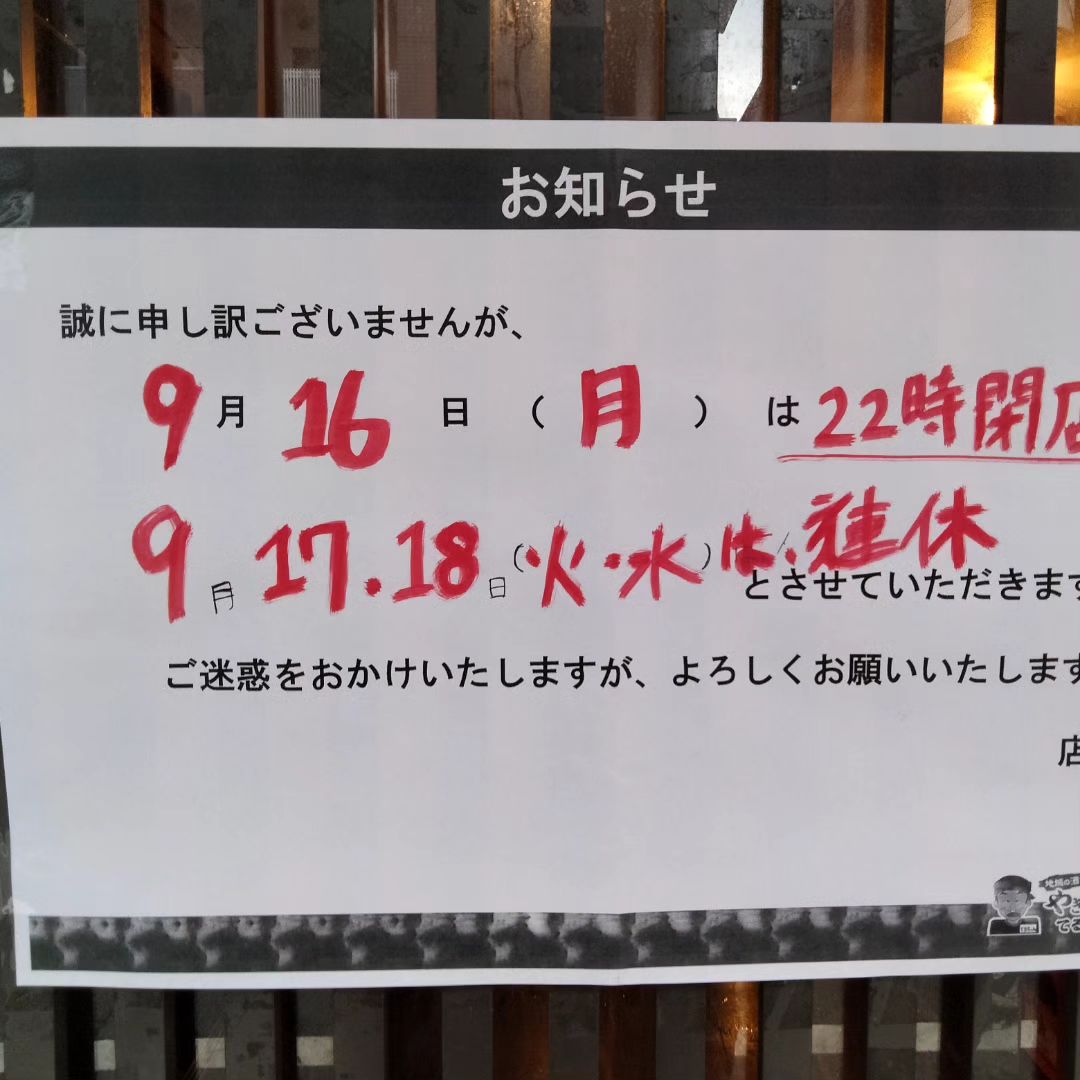 お知らせ
誠に申し訳ございませんが、
9月 16 日 （ 月 ） は 22時閉店
9月 17.18日(火・水)は、連休
とさせていただきます
ご迷惑をおかけいたしますが、よろしくお願いいたします
店